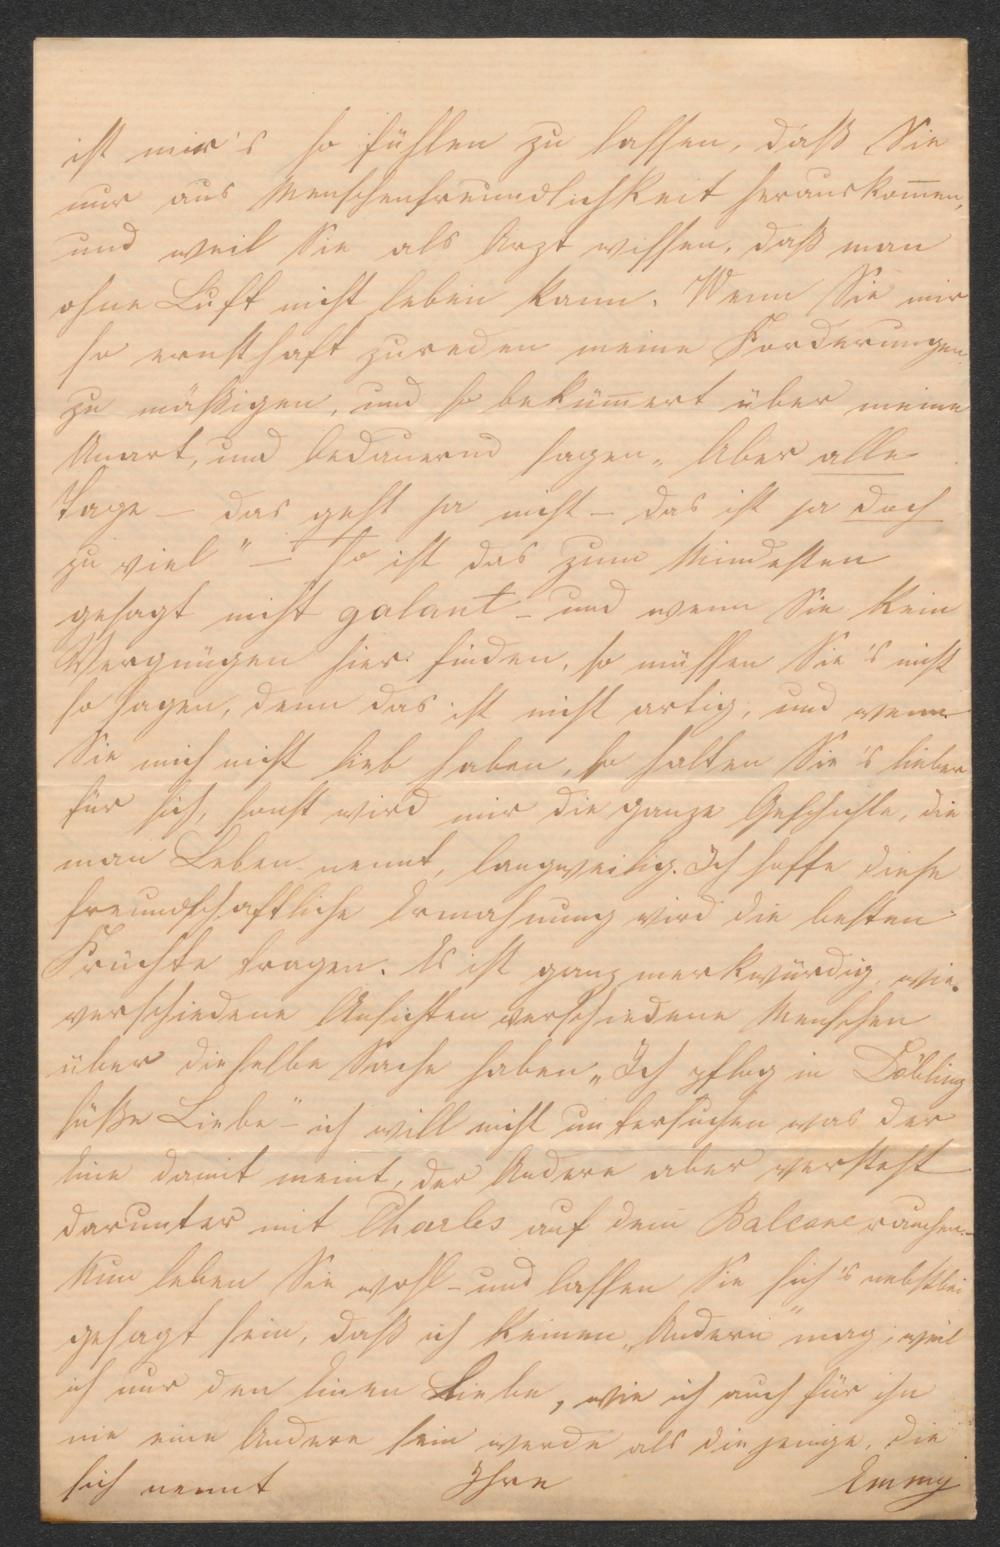 ist mir's so fühlen zu lassen, daß Sie
nur aus Menschenfreundlichkeit herauskom̅en,
und weil Sie als Arzt wissen, daß man
ohne Luft nicht leben kann. Wenn Sie mir
so ernsthaft zureden meine Forderungen
zu mäßigen, und so beküm̅ert über meine
Unart, und bedauernd sagen „Aber alle
Tage – das geht ja nicht – das ist ja doch
zu viel" – so ist das zum Mindesten
gesagt nicht galant – und wenn Sie kein
Vergnügen hier finden, so müssen Sie's nicht
so sagen, denn das ist nicht artig, und wenn
Sie mich nicht lieb haben, so halten Sie's lieber
für sich, sonst wird mir die ganze Geschichte, die
man Leben nennt, langweilig. Ich hoffe diese
freundschaftliche Ermahnung wird die besten
Früchte tragen. Es ist ganz merkwürdig, wie
verschiedene Ansichten verschiedene Menschen
über dieselbe Sache haben „Ich pfleg in Döbling
süße Liebe" – ich will nicht untersuchen was der
Eine damit meint, der Andere aber versteht
darunter mit Charles auf dem Balcone rauchen. –
Nun leben Sie wohl – und lassen Sie sich's nebstbei
gesagt sein, daß ich keinen „Andern" mag, weil
ich nur den Einen Liebe, wie ich auch für ihn
nie eine Andere sein werde als diejenige, die
sich nennt Ihre Emmy